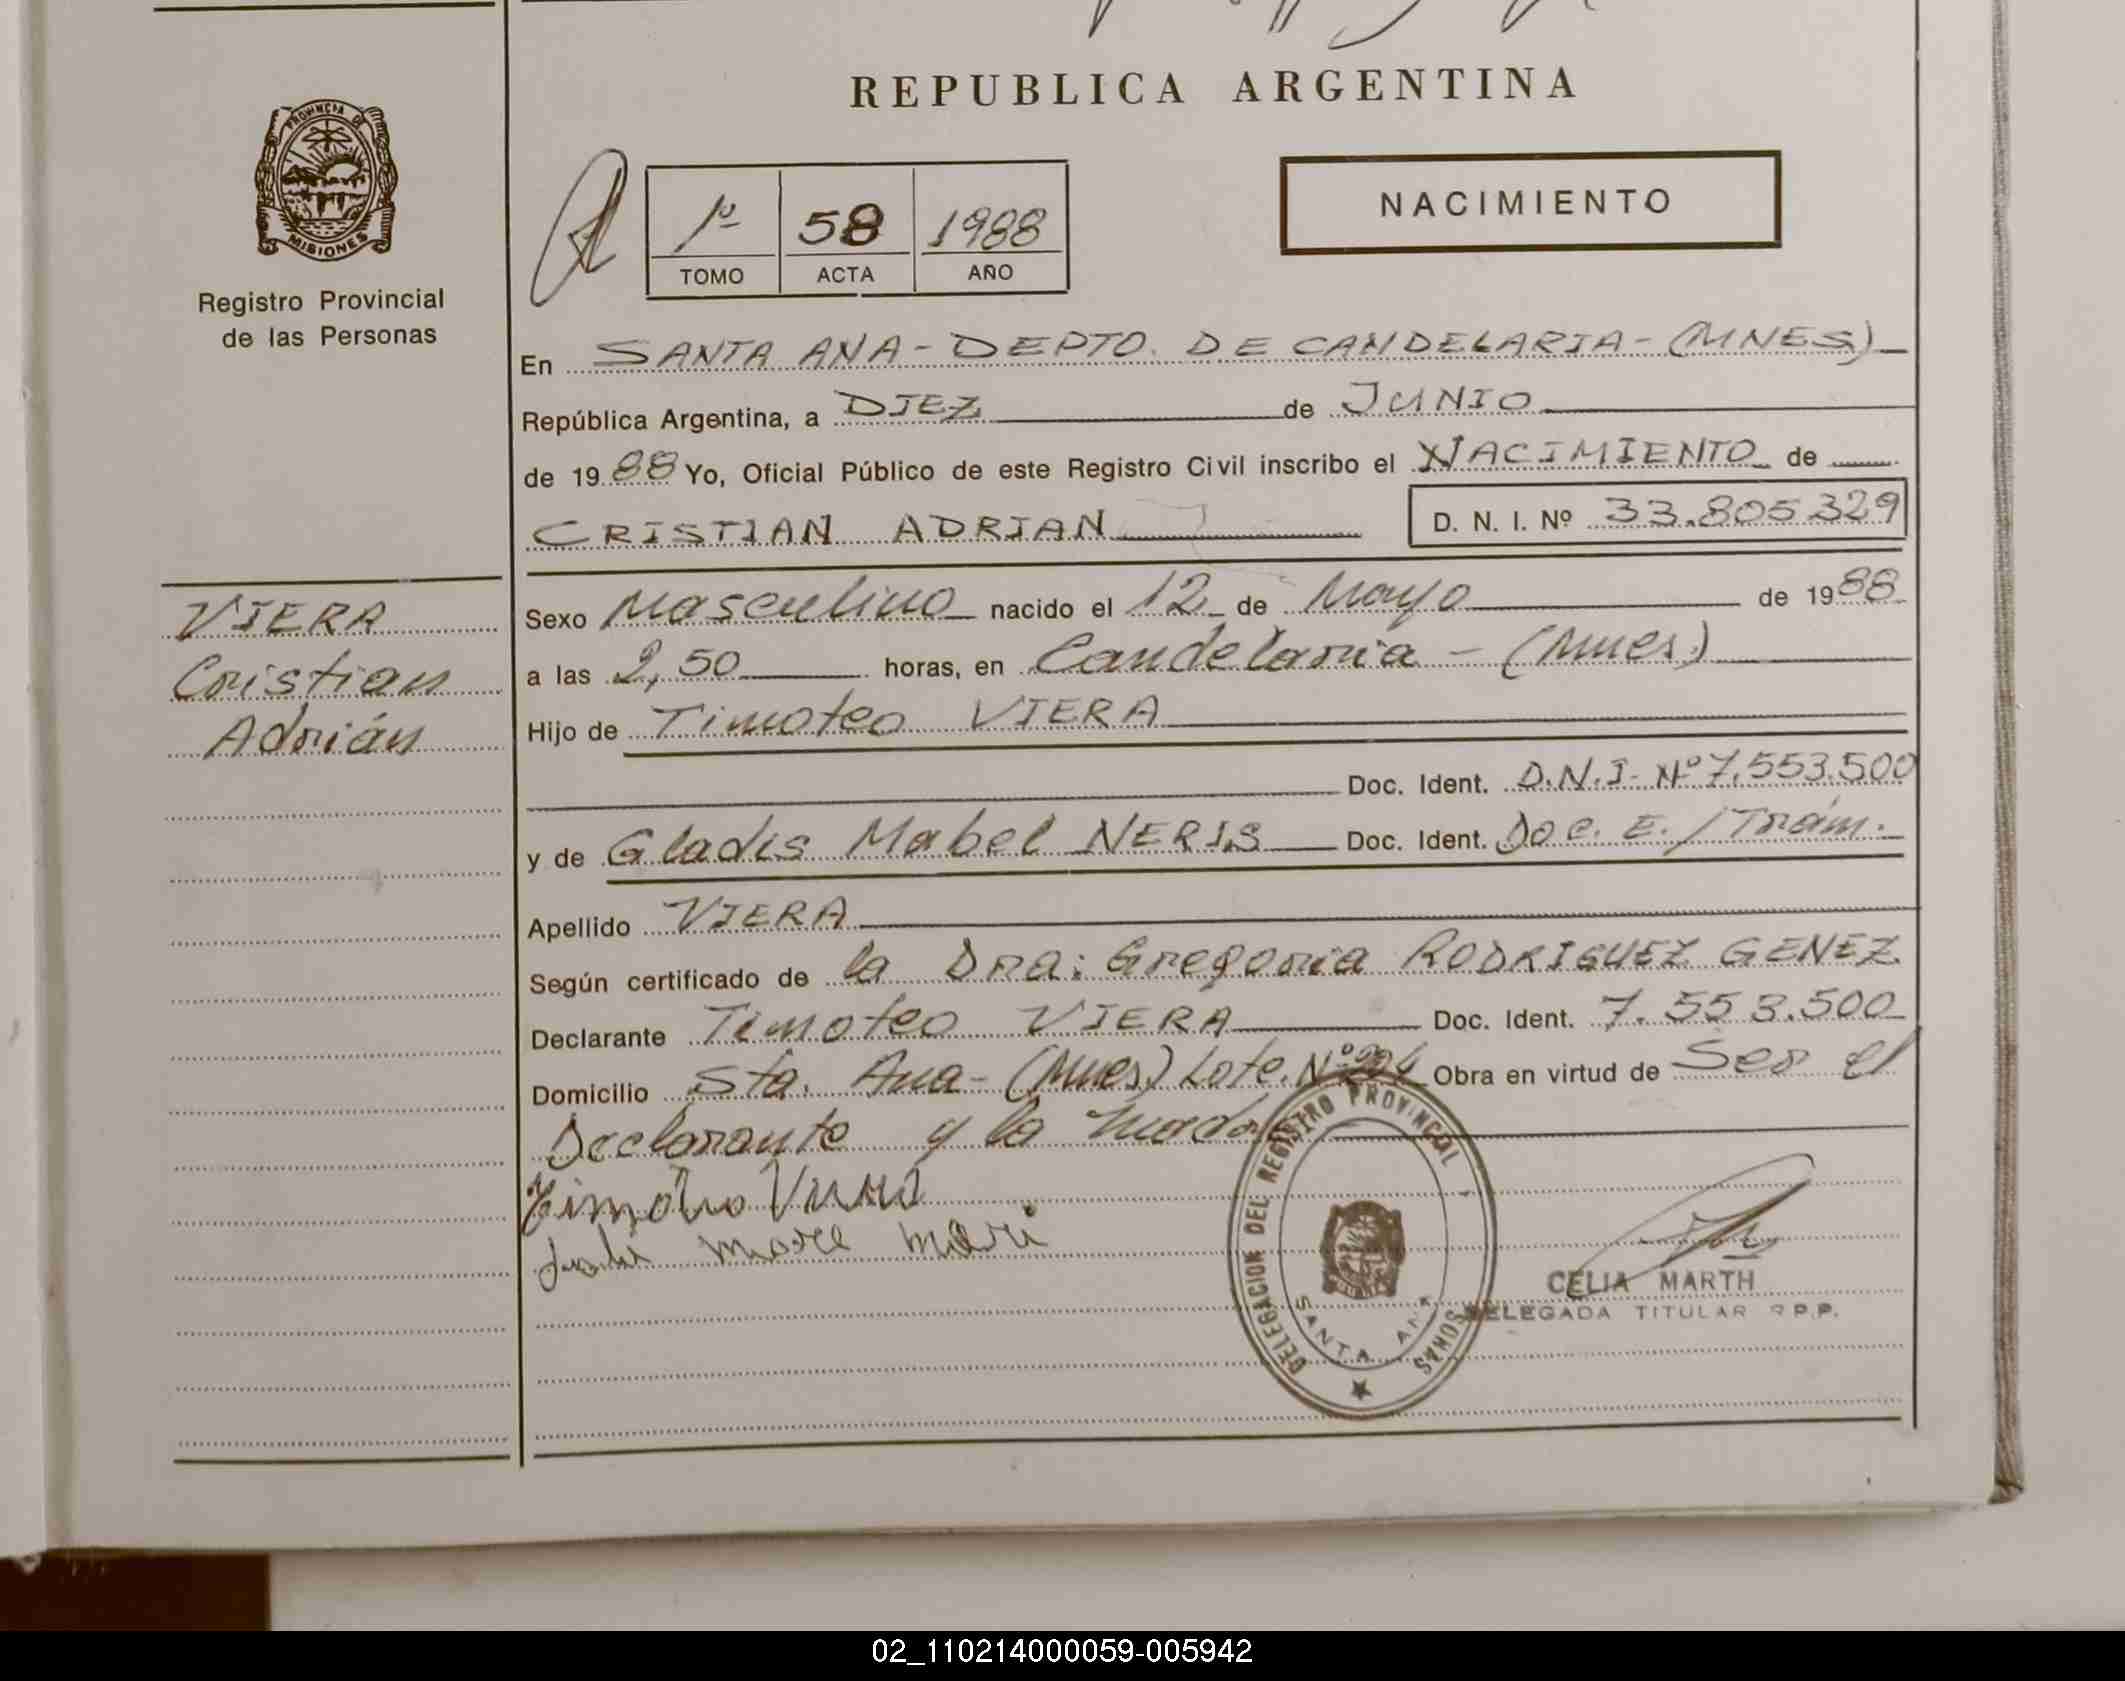 REPUBLICA ARGENTINA
PROVINCIA DE MISIONES
Registro Provincial
de las Personas
1º 58 1988
TOMO ACTA AÑO
NACIMIENTO
En SANTA ANA - DEPTO. DE CANDELARIA - (MNES)
República Argentina, a DIEZ de JUNIO
de 1988 Yo, Oficial Público de este Registro Civil inscribo el NACIMIENTO de
CRISTIAN ADRIAN D. N. I. Nº 33.805329
VIERA
Cristian
Adrián
Sexo Masculino nacido el 12 de Mayo de 1988
a las 2,50 horas, en Candelaria - (Mnes)
Hijo de Timoteo VIERA
Doc. Ident. D.N.I. Nº 7.553.500
y de Gladis Mabel NERIS Doc. Ident. Doc. E./Trám.
Apellido VIERA
Según certificado de la Dra: Gregoria RODRIGUEZ GENEZ
Declarante Timoteo VIERA Doc. Ident. 7.553.500
Domicilio Sta. Ana - (Mnes) Lote. Nº Obra en virtud de Ser el
Declarante y la madre
Timoteo
DELEGACION DEL REGISTRO PROVINCIAL
SANTA ANA
CELIA MARTH
DELEGADA TITULAR R.P.P.
02_110214000059-005942